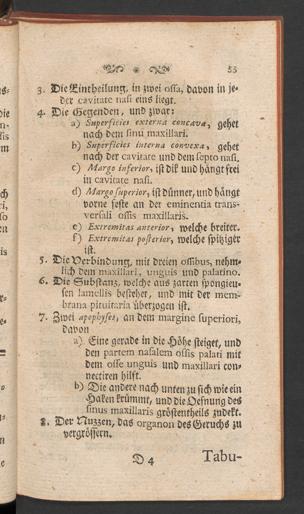 53
3. Die Eintheilung, in zwei ossa, davon in je-
der cavitate nasi eins liegt.
4. Die Gegenden, und zwar:
a) Superficies externa concava, gehet
nach dem sinu maxillari.
b) Superficies interna convexa, gehet
nach der cavitate und dem septo nasi.
c) Margo inferior, ist dik und hängt frei
in cavitate nasi.
d) Margo superior, ist dünner, und hängt
vorne feste an der eminentia trans-
versali ossis maxillaris.
e) Extremitas anterior, welche breiter.
f) Extremitas posterior, welche spitziger
ist.
5. Die Verbindung, mit dreien ossibus, nehm-
lich dem maxillari, unguis und palatino.
6. Die Substanz, welche aus zarten spongieu-
sen lamellis bestehet, und mit der mem-
brana pituitaria überzogen ist.
7. Zwei apophyses, an dem margine superiori,
davon
a) Eine gerade in die Höhe steiget, und
den partem nasalem ossis palati mit
dem osse unguis und maxillari con-
nectiren hilft.
b) Die andere nach unten zu sich wie ein
Haken krümmt, und die Oefnung des
sinus maxillaris gröstentheils zudekt.
8. Der Nuzzen, das organon des Geruchs zu
vergrössern.
D 4 Tabu-